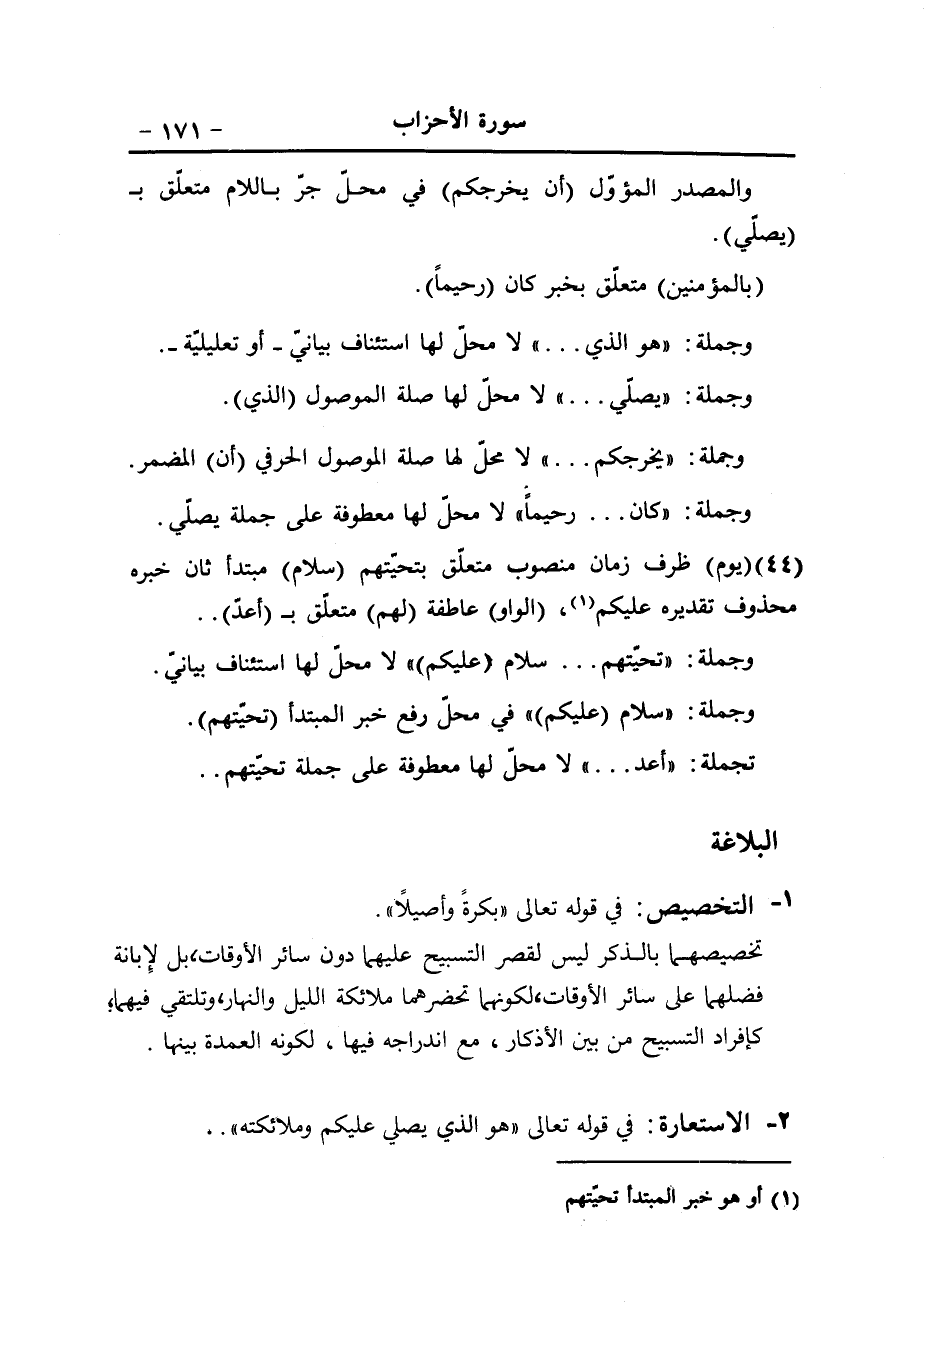 سورة الأحزاب - ١٧١ -
والمصدر المؤوّل (أن يخرجكم) في محلّ جرّ باللام متعلّق بـ
(يصلّي).
(بالمؤمنين) متعلّق بخبر كان (رحيماً).
وجملة: «هو الذي...» لا محلّ لها استئناف بيانيّ ـ أو تعليليّة ـ.
وجملة: «يصلّي...» لا محلّ لها صلة الموصول (الذي).
وجملة: «يخرجكم...» لا محلّ لها صلة الموصول الحرفي (أن) المضمر.
وجملة: «كان... رحيماً» لا محلّ لها معطوفة على جملة يصلّي.
(٤٤)(يوم) ظرف زمان منصوب متعلّق بتحيّتهم (سلام) مبتدأ ثان خبره
محذوف تقديره عليكم(١)، (الواو) عاطفة (لهم) متعلّق بـ (أعدّ)..
وجملة: «تحيّتهم... سلام (عليكم)» لا محلّ لها استئناف بيانيّ.
وجملة: «سلام (عليكم)» في محلّ رفع خبر المبتدأ (تحيّتهم).
تجملة: «أعد...» لا محلّ لها معطوفة على جملة تحيّتهم..
البلاغة
١- التخصيص: في قوله تعالى «بكرةً وأصيلًا».
تخصيصهما بالذكر ليس لقصر التسبيح عليهما دون سائر الأوقات،بل لإبانة
فضلهما على سائر الأوقات،لكونهما تحضرهما ملائكة الليل والنهار،وتلتقي فيهما،
كإفراد التسبيح من بين الأذكار ، مع اندراجه فيها ، لكونه العمدة بينها .
٢- الاستعارة: في قوله تعالى «هو الذي يصلي عليكم وملائكته»..
(١) أو هو خبر المبتدأ تحيّتهم